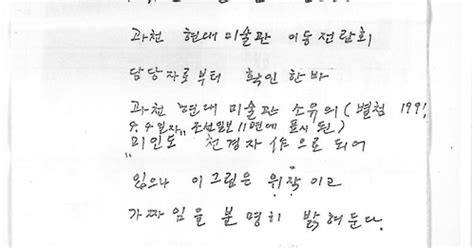 과천 현대 미술관 이동전람회
담당자로부터 확인한바
과천 현대 미술관 소유의 (별첨 199
4.4일자 조선일보 11면에 표시된)
"미인도" 천경자 作으로 되어
있으나 이 그림은 위작이고
가짜임을 분명히 밝혀둔다.